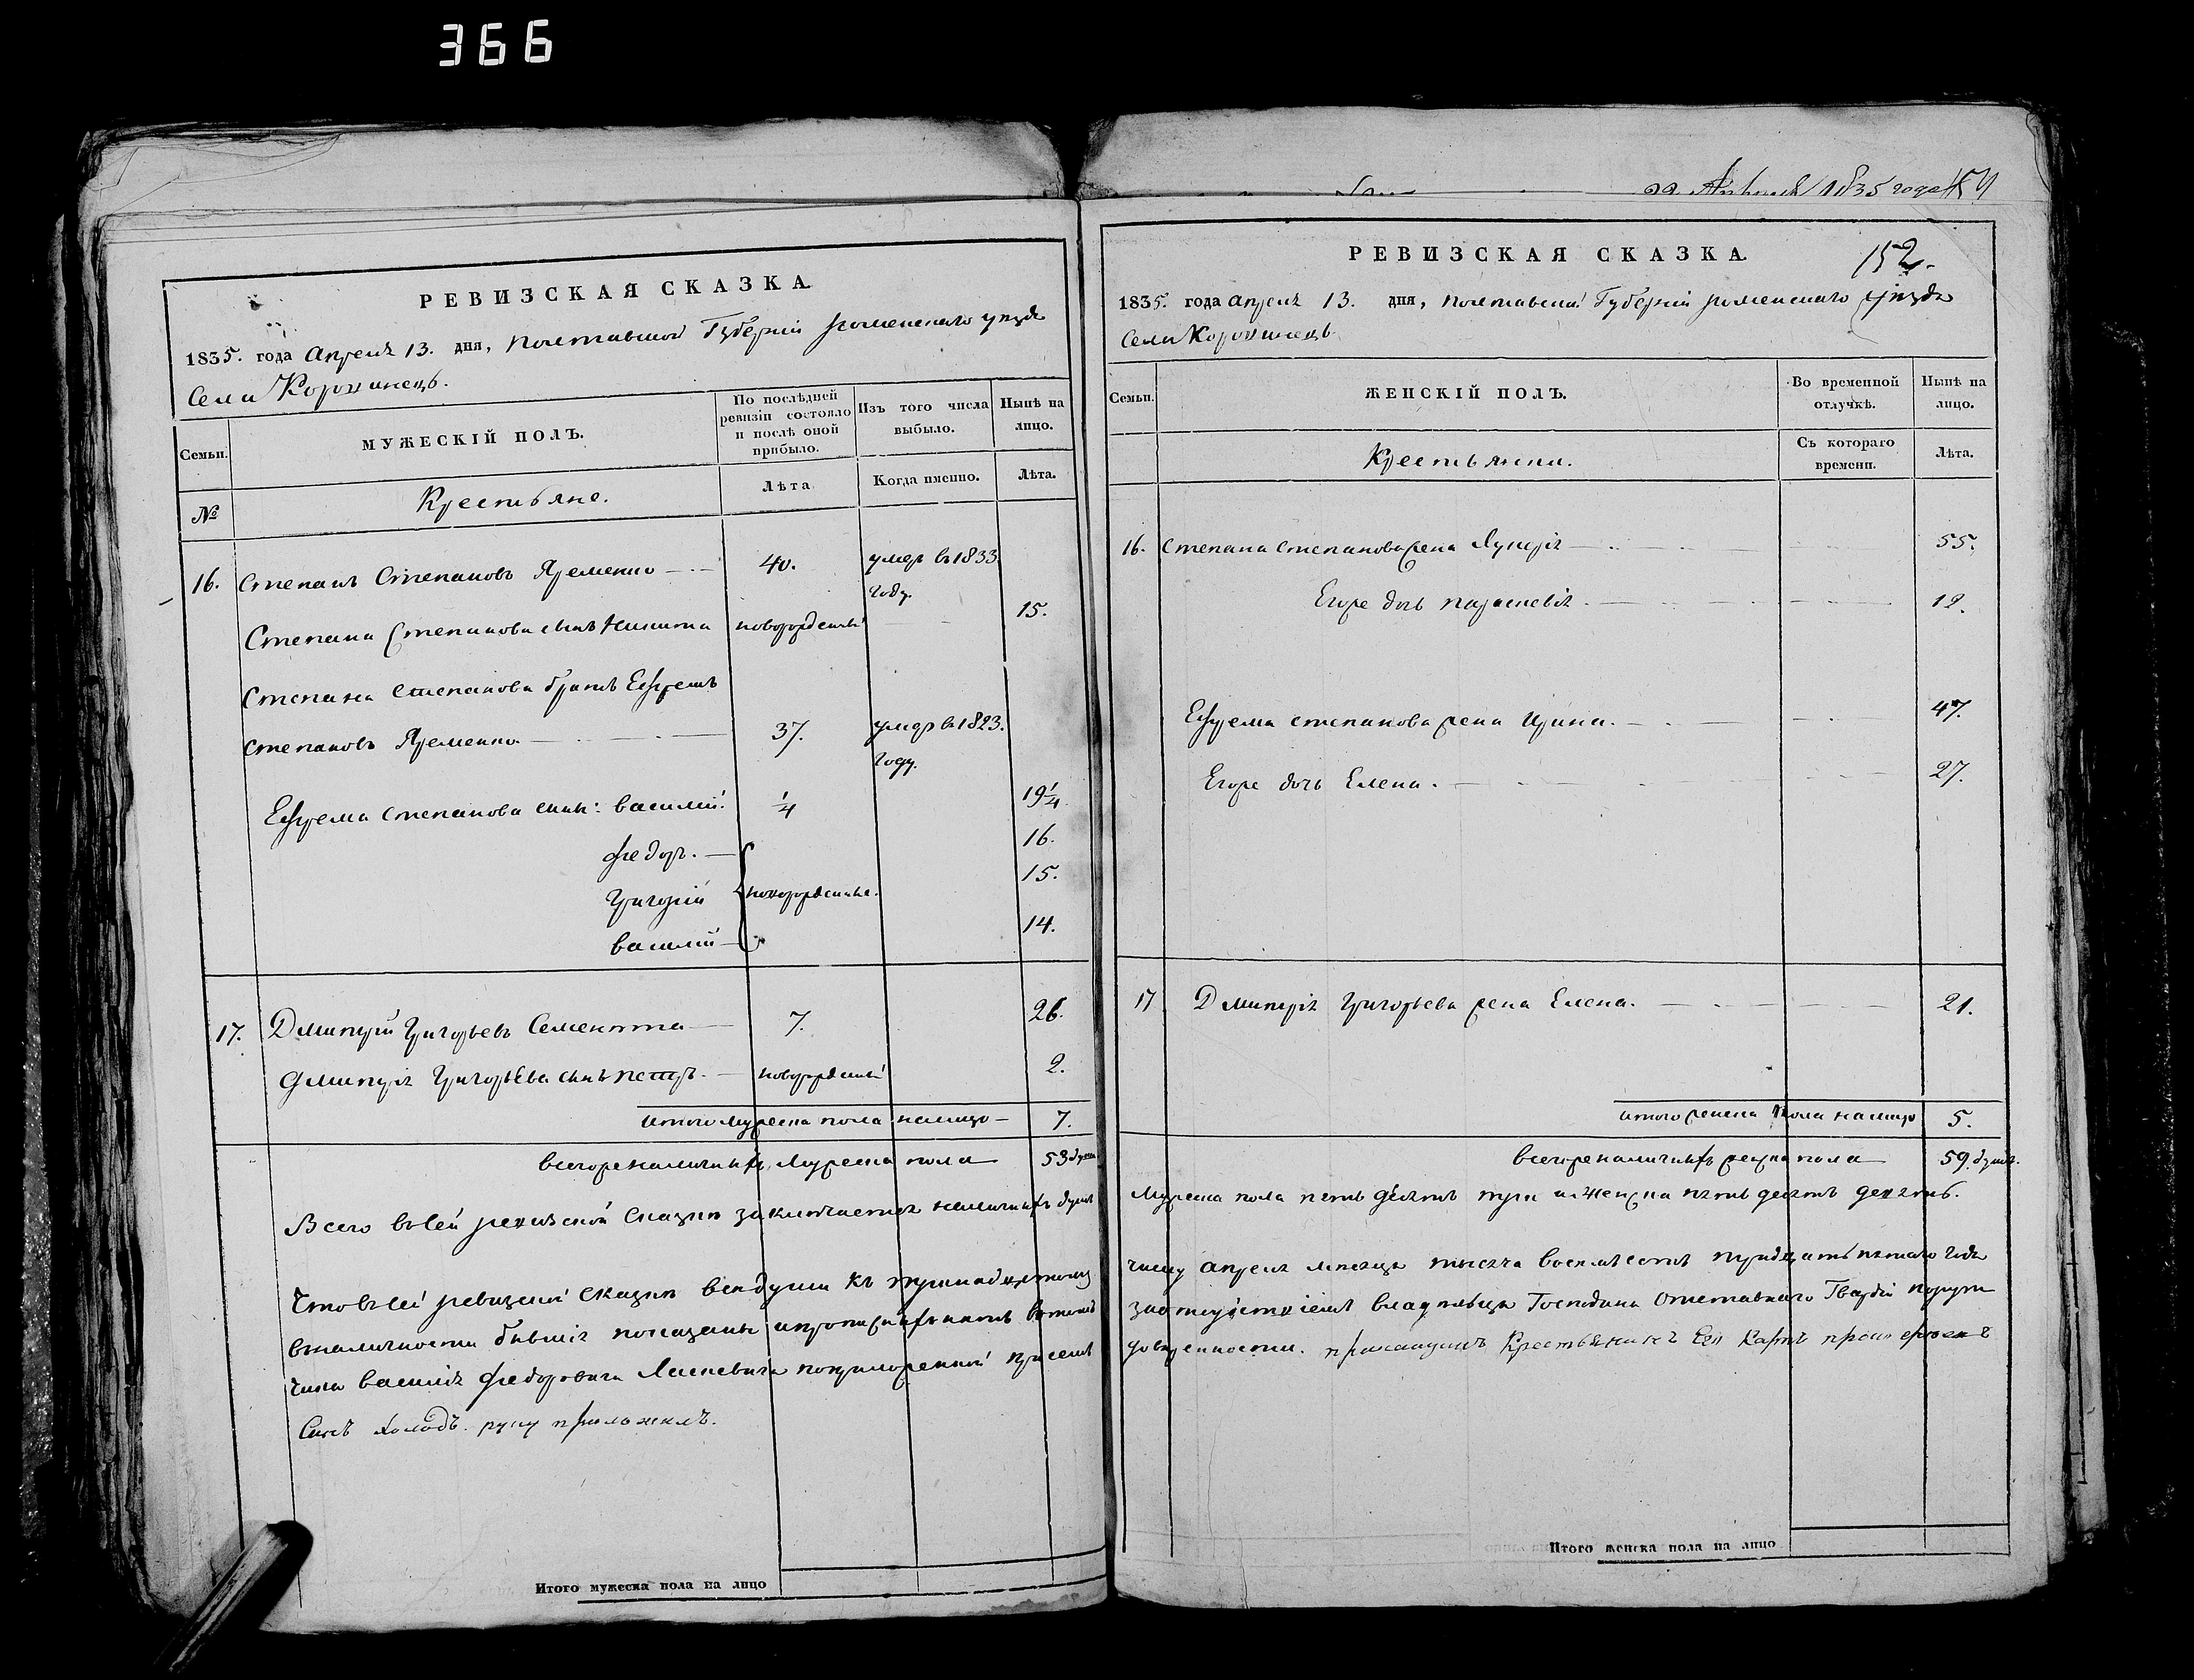 366
РЕВИЗСКАЯ СКАЗКА
1835. года Апреля 13. дня, Полтавской Губернiи Роменского уезда
Села Коровинецъ.
Семьи.
МУЖЕСКІЙ ПОЛЪ.
По послѣдней ревизіи состояло и послѣ оной прибыло.
Изъ того числа выбыло.
Нынѣ на лицо.
№
Крестьяне.
Лѣта
Когда именно.
Лѣта.
16. Степанъ Степановъ Яременко 40. умеръ въ 1833. году.
Степана Степанова сынъ Никита новорожденный 15.
Степана Степанова братъ Ефремъ
Степановъ Яременко 37. умеръ въ 1823. году.
Ефрема Степанова сыны: Василий. 1/4 19 1/4.
Федоръ. 16.
Григорий новорожденные. 15.
Василий 14.
17. Дмитрий Григорьевъ Сементта 7. 26.
Дмитрия Григорьева сынъ Петръ. новорожденный 2.
Итого мужеска пола налицо 7.
Всего же наличныхъ мужеска пола 53 душ
Всего въ сей ревизской сказке заключается наличныхъ душъ
Что въ сей ревизской сказке все души къ тринадцатому
в наличности бывшие показаны и прописныхъ нетъ в томъ
чика Василия Федоровича покуполюренной присяге
Холодъ. руку приложилъ.
Итого мужеска пола на лицо
Апреля 1835 года
РЕВИЗСКАЯ СКАЗКА.
152.
1835. года Апреля 13. дня, Полтавской Губернiи Роменского уезда
Села Коровинецъ
Семьи.
ЖЕНСКІЙ ПОЛЪ.
Во временной отлучкѣ.
Нынѣ на лицо.
Крестьянки.
Съ котораго времени.
Лѣта.
16. Степана Степанова жена 55.
Егоже дочь Параскевия. 12.
Ефрема Степанова жена Ирина. 47.
Егоже дочь Елена. 27.
17 Дмитрия Григорьева жена Елена. 21.
Итого женска пола налицо 5.
Всего же наличныхъ женска пола 59. душъ.
Мужеска пола пятьдесятъ три и женска пятьдесятъ девять.
числу Апреля месяца тысяча восемьсотъ тридцать пятого года
за отсутствиемъ владельца Господина Отставного Гвардии поручи
Крестьянинъ Его
Итого женска пола на лицо